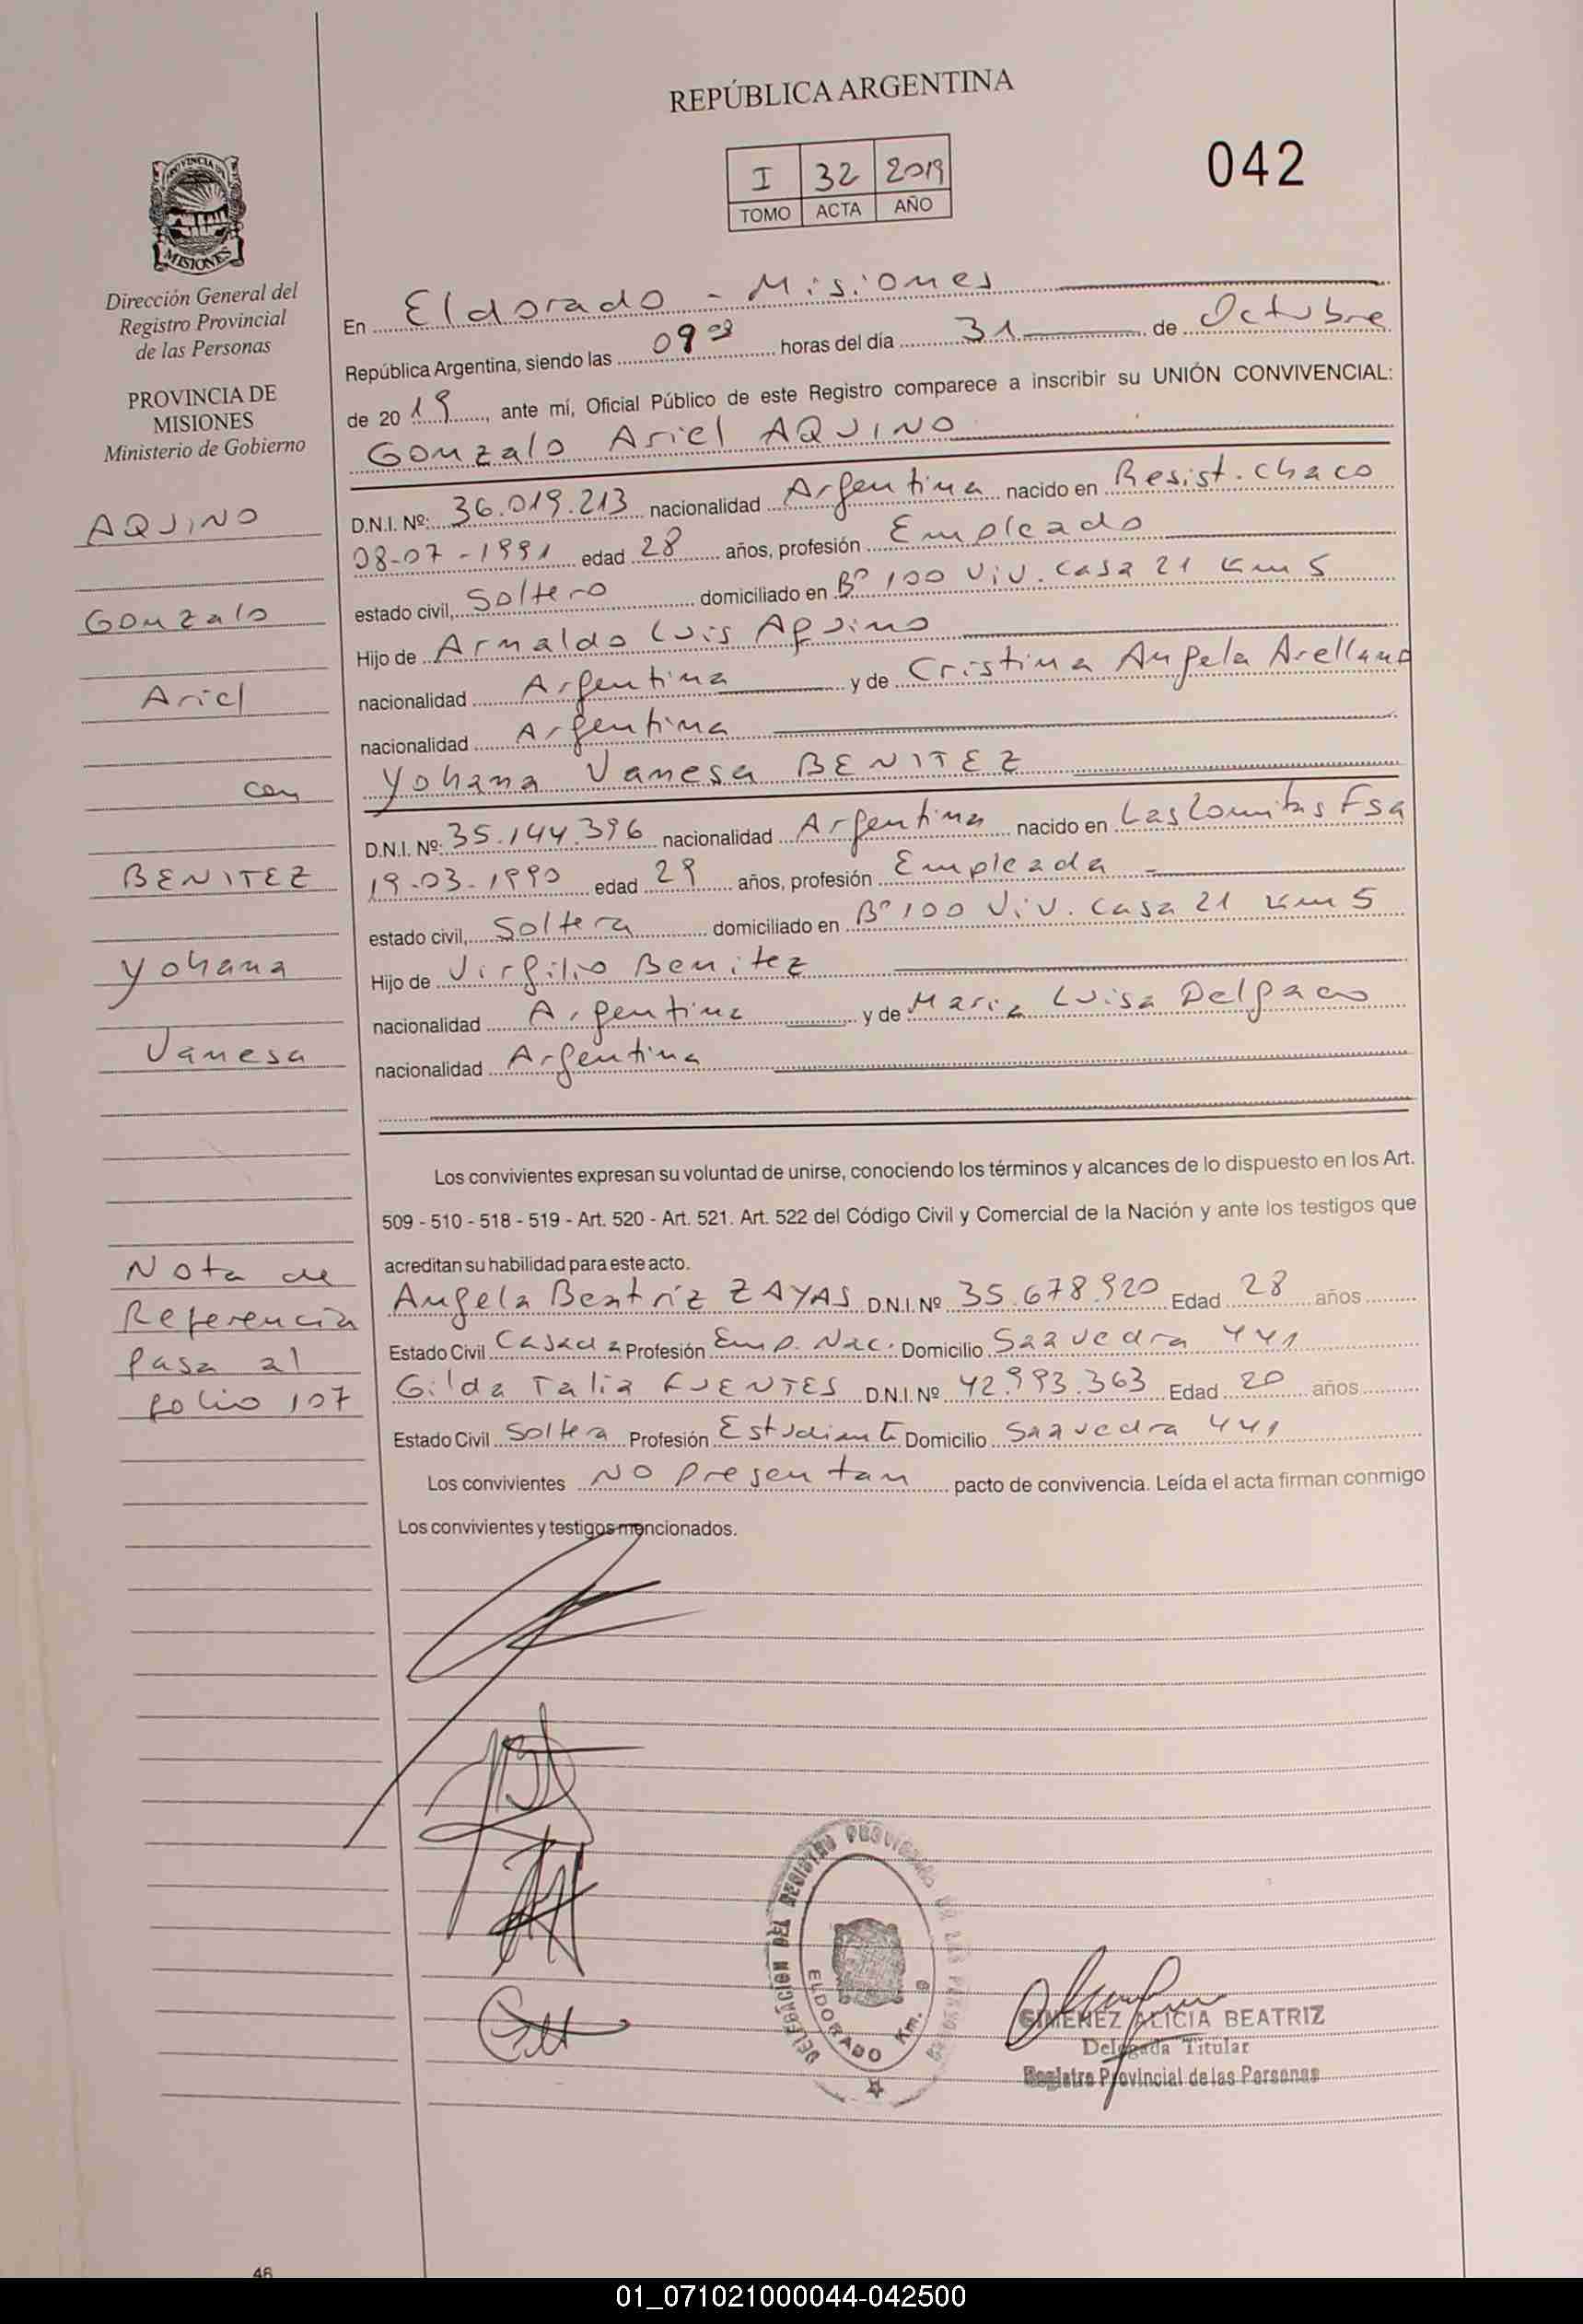 REPÚBLICA ARGENTINA
I 32 2019
TOMO ACTA AÑO
042
PROVINCIA DE
MISIONES
Dirección General del
Registro Provincial
de las Personas
PROVINCIA DE
MISIONES
Ministerio de Gobierno
AQUINO
Gonzalo
Ariel
con
BENITEZ
Yohana
Vanesa
Nota de
Referencia
pasa al
folio 107
En Eldorado - Misiones
República Argentina, siendo las 09 horas del día 31 de Octubre
de 2019, ante mí, Oficial Público de este Registro comparece a inscribir su UNIÓN CONVIVENCIAL:
Gonzalo Ariel AQUINO
D.N.I. Nº: 36.019.213 nacionalidad Argentina nacido en Resist. Chaco
08-07-1991 edad 28 años, profesión Empleado
estado civil, Soltero domiciliado en Bº 100 Viv. Casa 21 Km 5
Hijo de Arnaldo Luis Aquino
nacionalidad Argentina y de Cristina Angela Arellano
nacionalidad Argentina
Yohana Vanesa BENITEZ
D.N.I. Nº: 35.144.396 nacionalidad Argentina nacido en Las Lomitas Fsa
19-03-1990 edad 29 años, profesión Empleada
estado civil, Soltera domiciliado en Bº 100 Viv. Casa 21 Km 5
Hijo de Virgilio Benitez
nacionalidad Argentina y de Maria Luisa Delgado
nacionalidad Argentina
Los convivientes expresan su voluntad de unirse, conociendo los términos y alcances de lo dispuesto en los Art.
509 - 510 - 518 - 519 - Art. 520 - Art. 521. Art. 522 del Código Civil y Comercial de la Nación y ante los testigos que
acreditan su habilidad para este acto.
Angela Beatriz ZAYAS D.N.I. Nº 35.678.920 Edad 28 años
Estado Civil Casada Profesión Emp. Nac. Domicilio Saavedra 441
Gilda Talia FUENTES D.N.I. Nº 42.993.363 Edad 20 años
Estado Civil Soltera Profesión Estudiante Domicilio Saavedra 441
Los convivientes NO presentan pacto de convivencia. Leída el acta firman conmigo
Los convivientes y testigos mencionados.
DELEGACION DEL REGISTRO PROVINCIAL DE LAS PERSONAS
ELDORADO Km.
GIMENEZ ALICIA BEATRIZ
Delegada Titular
Registro Provincial de las Personas
46
01_071021000044-042500